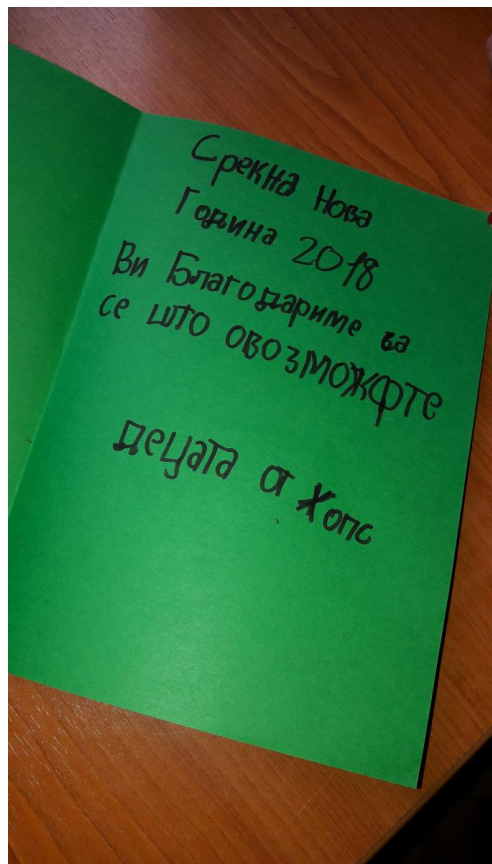 Срекна Нова
Година 2018
Ви Благодариме за
се што овозможфте
децата от Хопс